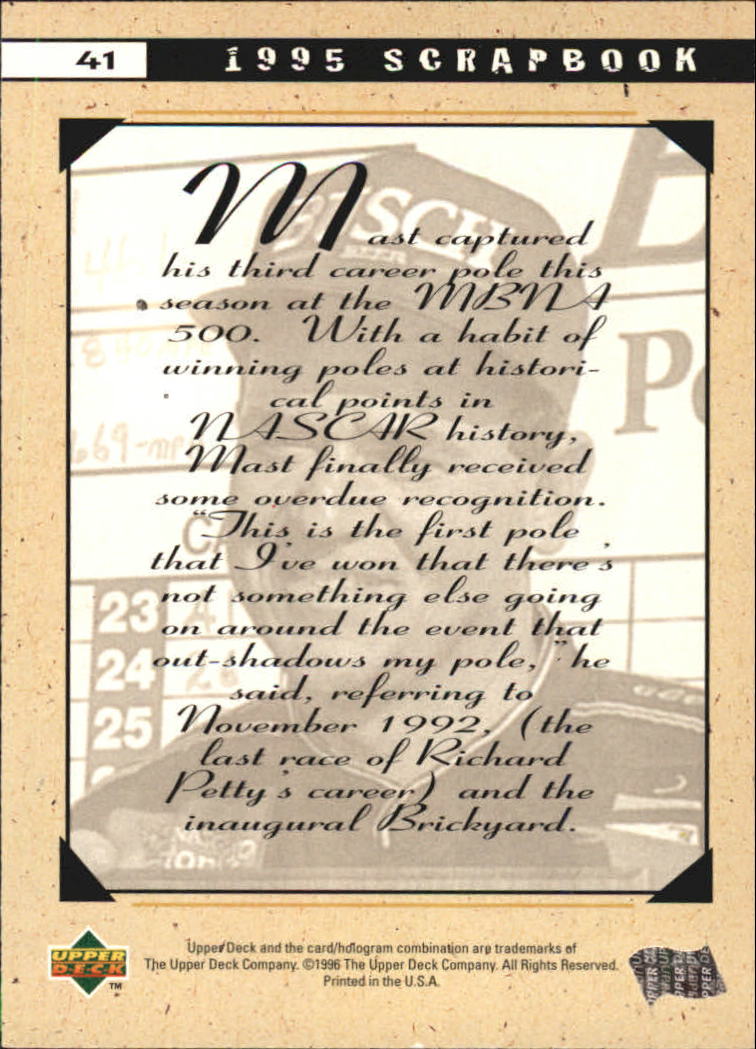 41
1995 SCRAPBOOK
Mast captured
his third career pole this
season at the MBNA
500. With a habit of
winning poles at histori-
cal points in
NASCAR history,
Mast finally received
some overdue recognition.
"This is the first pole
that I've won that there's
not something else going
on around the event that
out-shadows my pole," he
said, referring to
November 1992, (the
last race of Richard
Petty's career) and the
inaugural Brickyard.
BUSCH
BEER
669-mp
23
24
25
UPPER
DECK
TM
Upper Deck and the card/hologram combination are trademarks of
The Upper Deck Company. ©1996 The Upper Deck Company. All Rights Reserved.
Printed in the U.S.A.